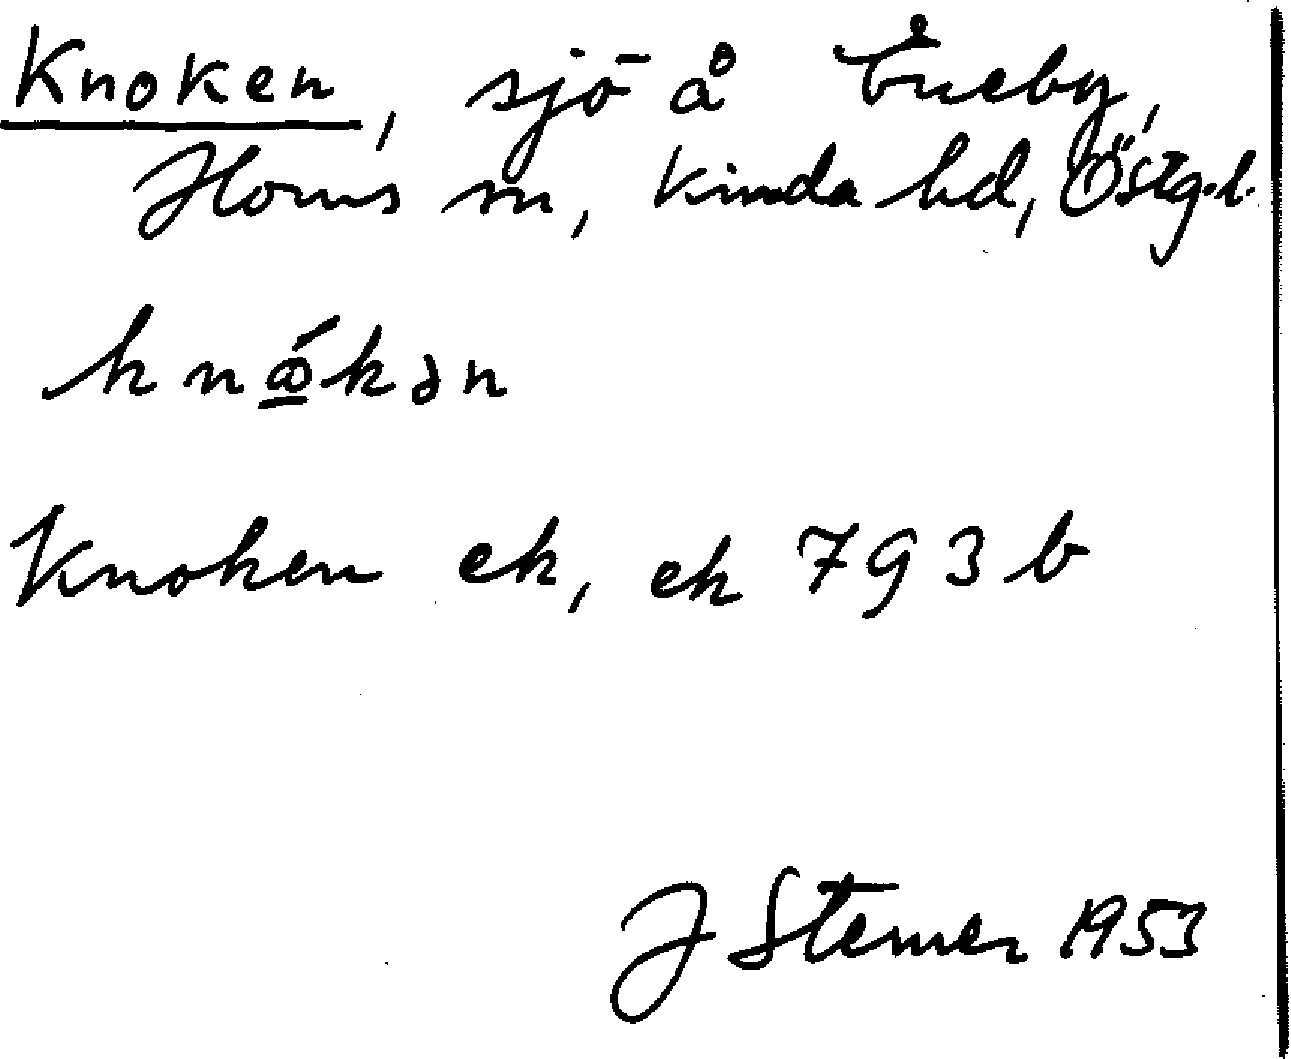 Knoken, sjö å Tråeby,
Horns sn, Kinda hd, Östg.l.
knώ̲kən
Knoken ek, ek 7 g 3 b
J Sterner 1953